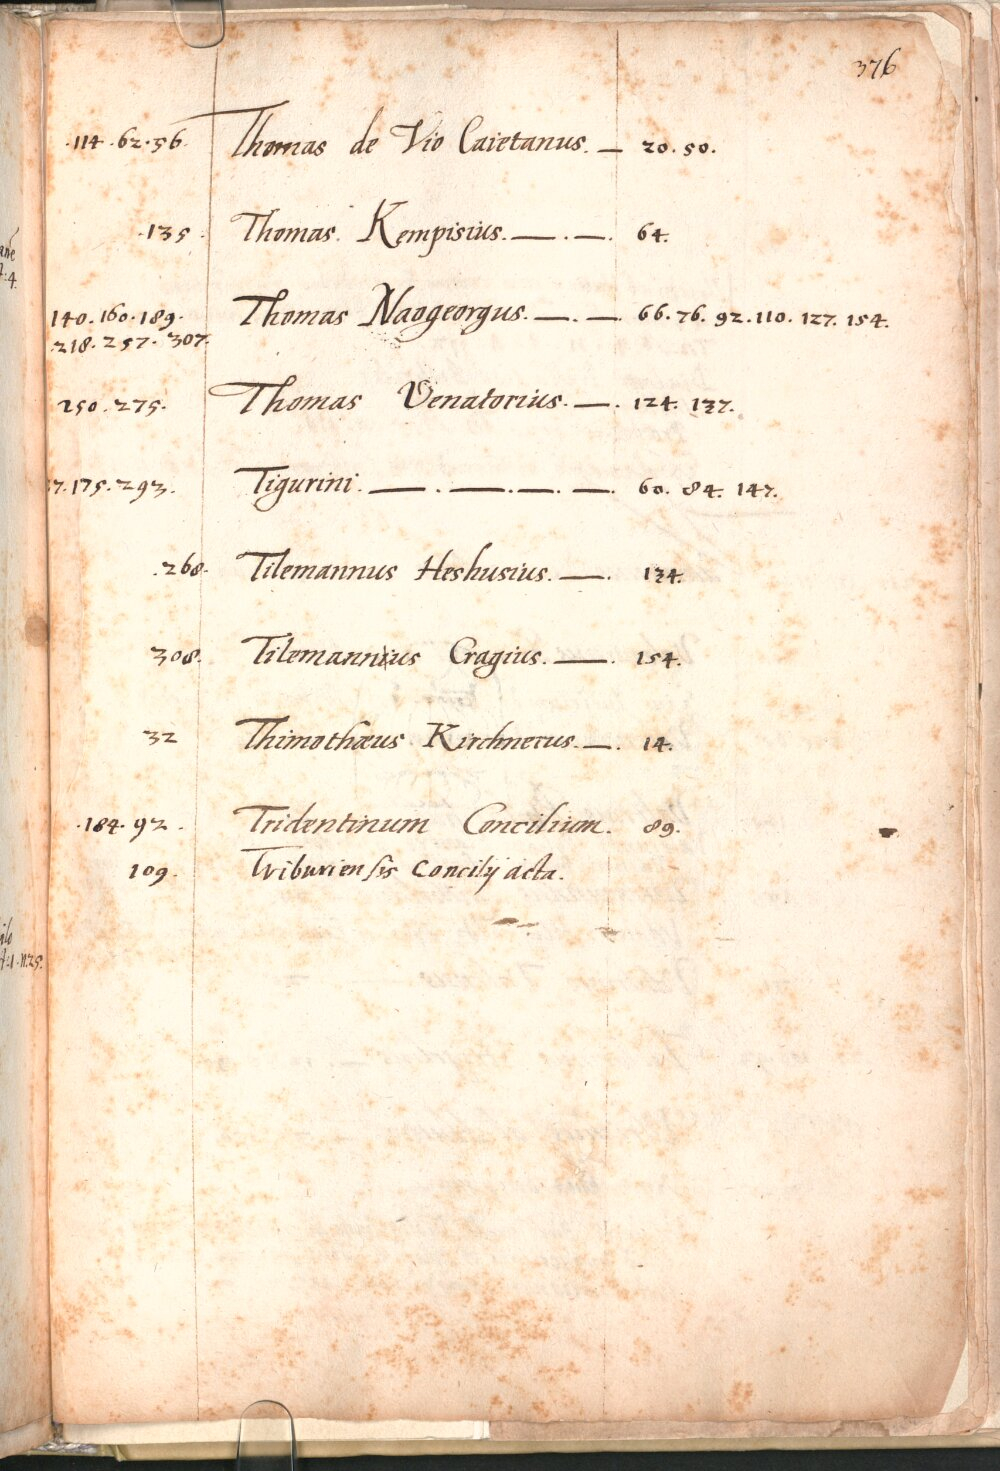 376
.114.62.56. Thomas de Vio Caietanus. — 20.50.
.135. Thomas. Kempisius. — . — . 64.
140.160.189. Thomas Naogeorgus. — . — 66.76.92.110.127.154.
.218.257.307.
250.275. Thomas Venatorius. — . 124. 137.
7.175.293. Tigurini. — . — . — . — . 60. 84. 147.
.268. Tilemannus Heshusius. — . 134.
308. Tilemannus Cragius. — . 154.
32 Thimothæus Kirchnerus. — . 14.
.184.92. Tridentinum Concilium. 89.
109. Triburiensis Concilij acta.